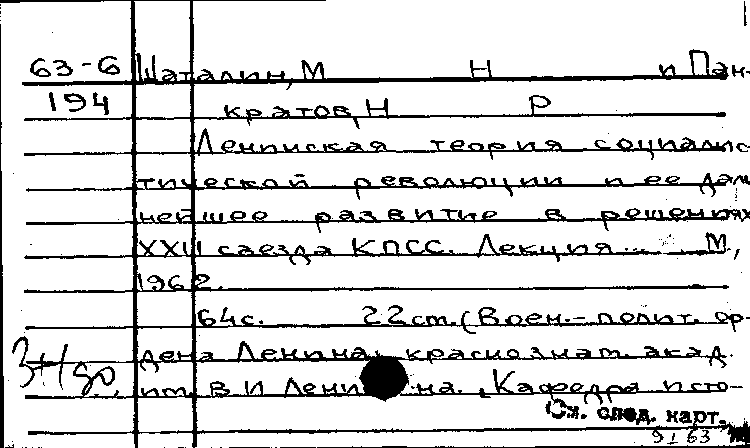 63-6 Шаталин, М Н и Пан-
194 кратов, Н Р
Ленинская теория социалис
тической революции и ее даль
нейшее развитие в решениях
XXII съезда КПСС. Лекция... М,
1962.
64с. 22см. (Воен.-полит. ор-
дена Ленина, краснознам. акад.
им. В И Ленина. Кафедра исто-
См. след. карт.